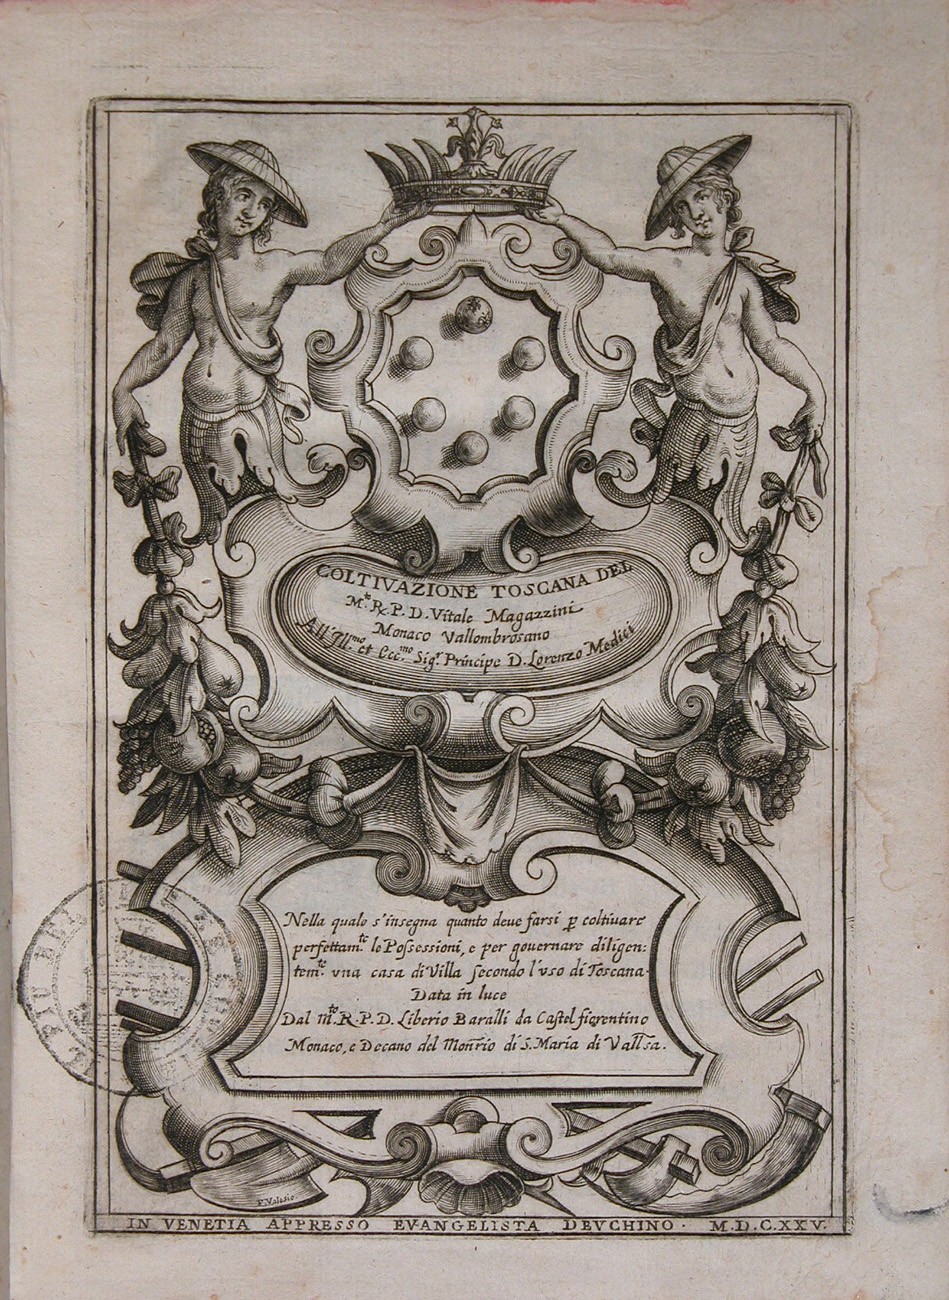 COLTIVAZIONE TOSCANA DEL
M.to R. P. D. Vitale Magazzini
Monaco Vallombrosano
All'Ill.mo et Ecc.mo Sig.r Principe D. Lorenzo Medici
Nella quale s'insegna quanto deue farsi ꝑ coltiuare
perfettam.te le Possessioni, e per gouernare diligen:
tem.te vna casa di Villa secondo l'vso di Toscana.
Data in luce
Dal m.to R. P. D. Liberio Baralli da Castel fiorentino
Monaco, e Decano del Mon̄rio di S. Maria di Vall'sa.
F. Valesio
IN VENETIA APPRESSO EVANGELISTA DEVCHINO · M.D.C.XXV.